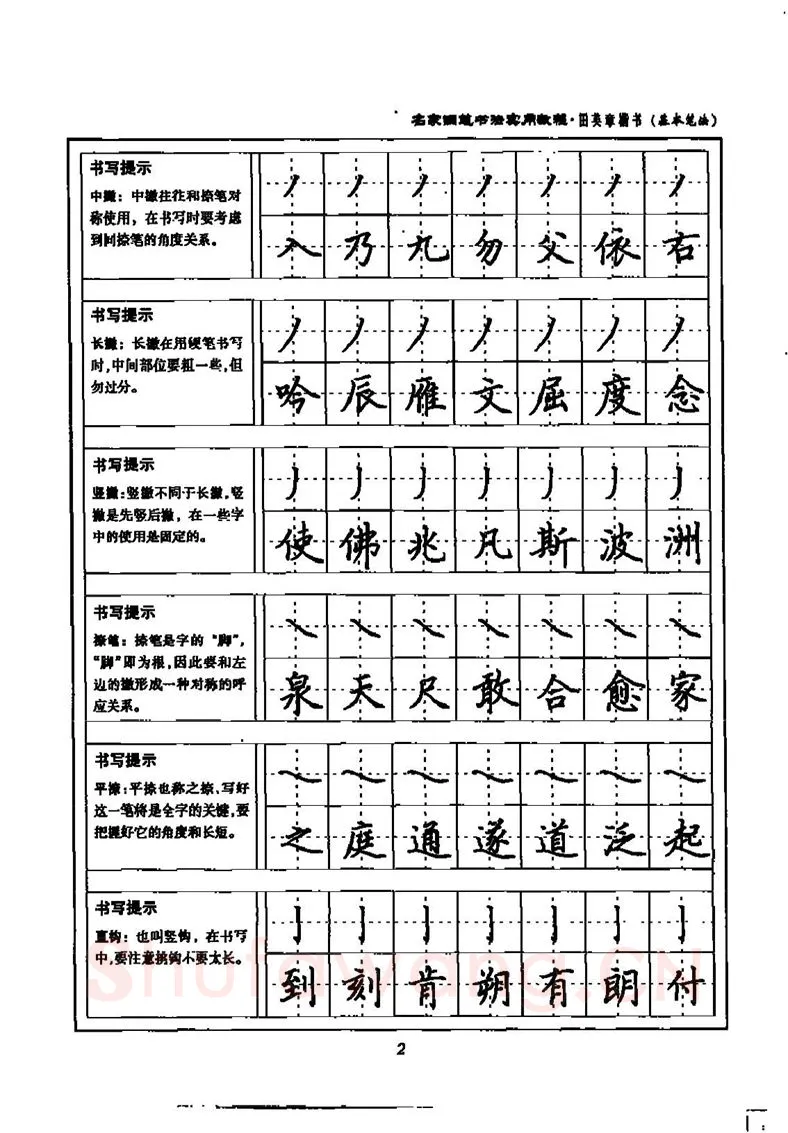 名家钢笔书法实用教程·田英章楷书（基本笔法）
书写提示
中撇：中撇往往和捺笔对
称使用，在书写时要考虑
到同捺笔的角度关系。
丿丿丿丿丿丿丿
入乃九勿父依右
书写提示
长撇：长撇在用硬笔书写
时,中间部位要粗一些,但
勿过分。
丿丿丿丿丿丿丿
吟辰雁文屈度念
书写提示
竖撇:竖撇不同于长撇,竖
撇是先竖后撇，在一些字
中的使用是固定的。
丿丿丿丿丿丿丿
使佛兆凡斯波洲
书写提示
捺笔：捺笔是字的“脚”，
“脚”即为根,因此要和左
边的撇形成一种对称的呼
应关系。
㇏㇏㇏㇏㇏㇏㇏
泉天尺敢合愈家
书写提示
平捺:平捺也称之捺,写好
这一笔将是全字的关键,要
把握好它的角度和长短。
㇏㇏㇏㇏㇏㇏㇏
之庭通遂道泛起
书写提示
直钩：也叫竖钩，在书写
中,要注意挑钩不要太长。
亅亅亅亅亅亅亅
到刻肯朔有朗付
Shufawang.CN
2